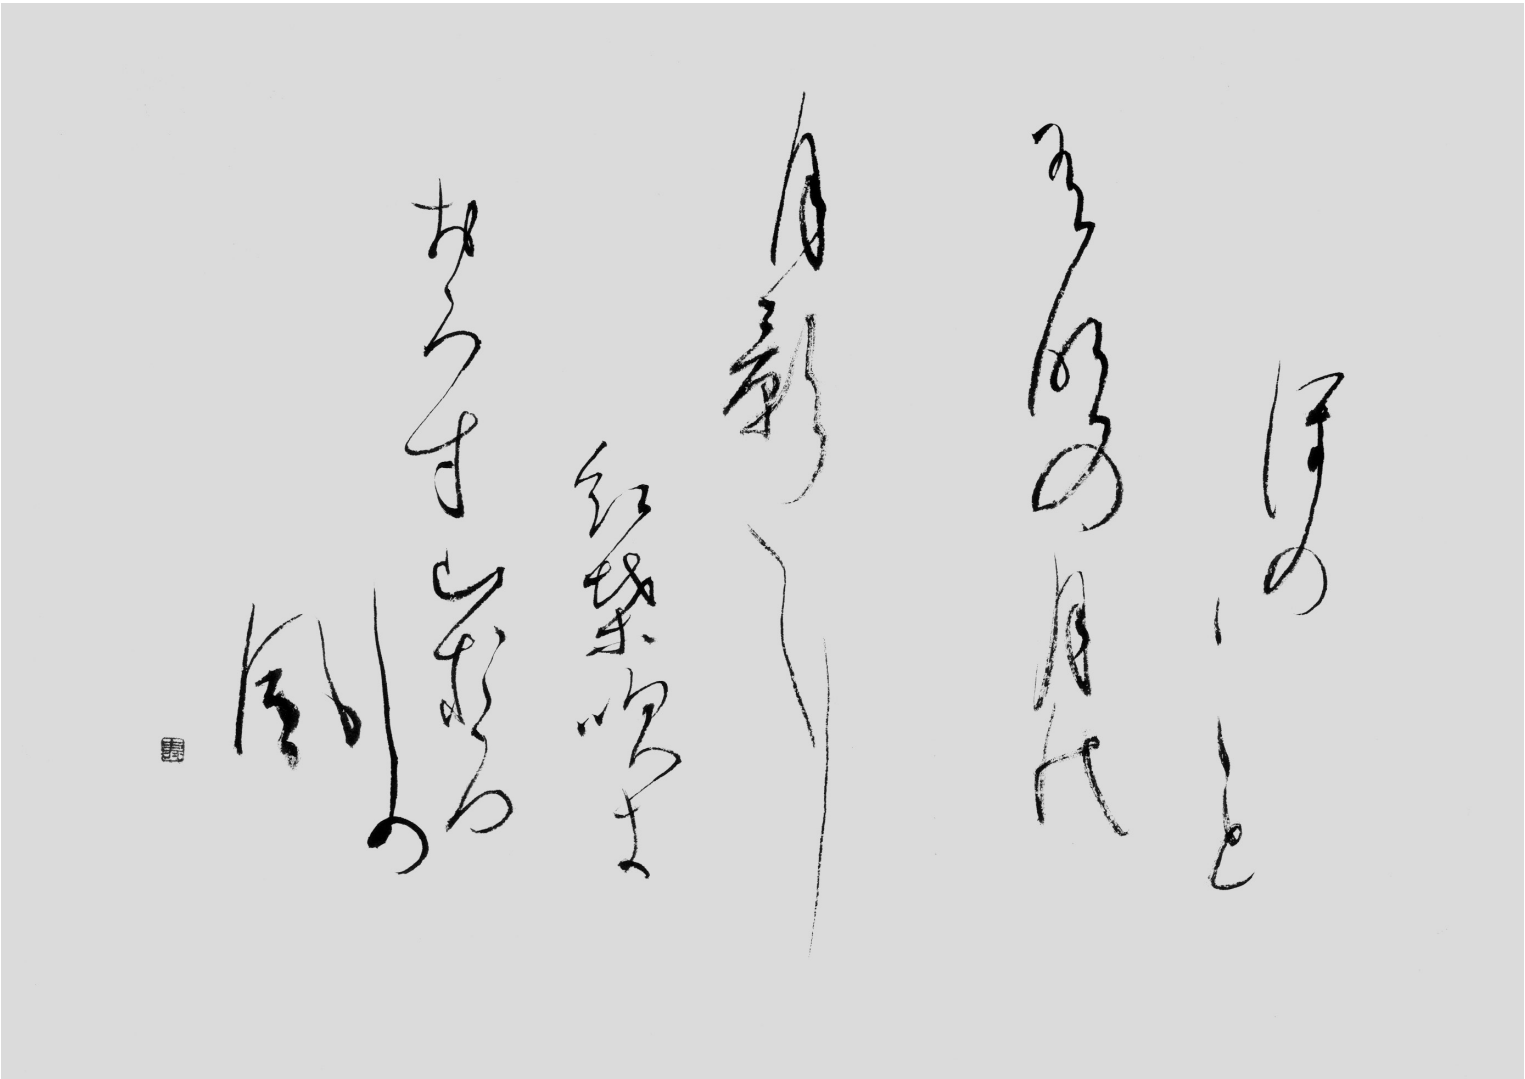 ほの
〱と
有明の月の
月影に
紅葉吹き
おろす山おろ
しの
風